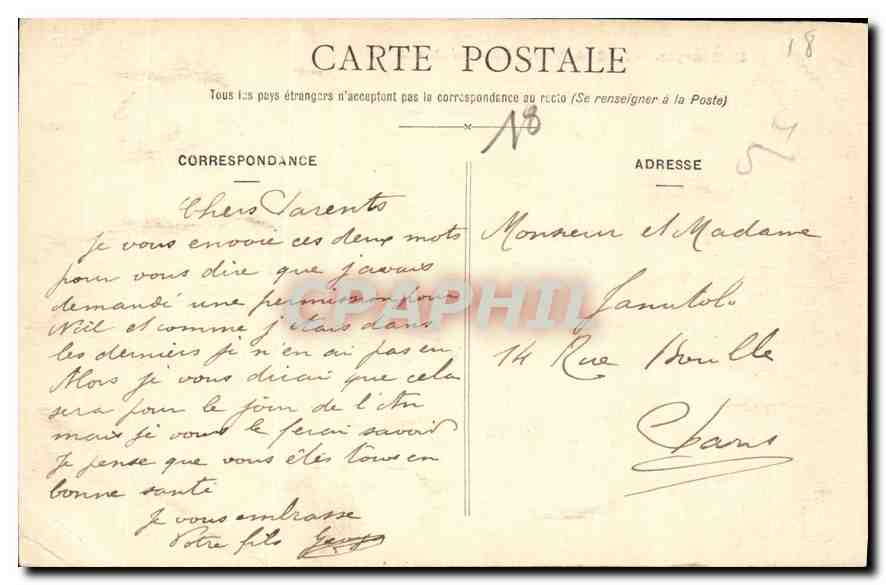 18
CARTE POSTALE
Tous les pays étrangers n'acceptent pas la correspondance au recto (Se renseigner à la Poste)
18
54
CORRESPONDANCE
Chers Parents
Je vous envoie ces deux mots
pour vous dire que j'avais
demandé une permission pour
Noël et comme j'étais dans
les derniers je n'en ai pas eu
Alors je vous dirai que cela
sera pour le jour de l'An
mais je vous le ferai savoir
Je pense que vous êtes tous en
bonne santé
Je vous embrasse
Votre fils
ADRESSE
Monsieur et Madame
14 Rue
Paris
CPAPHIL